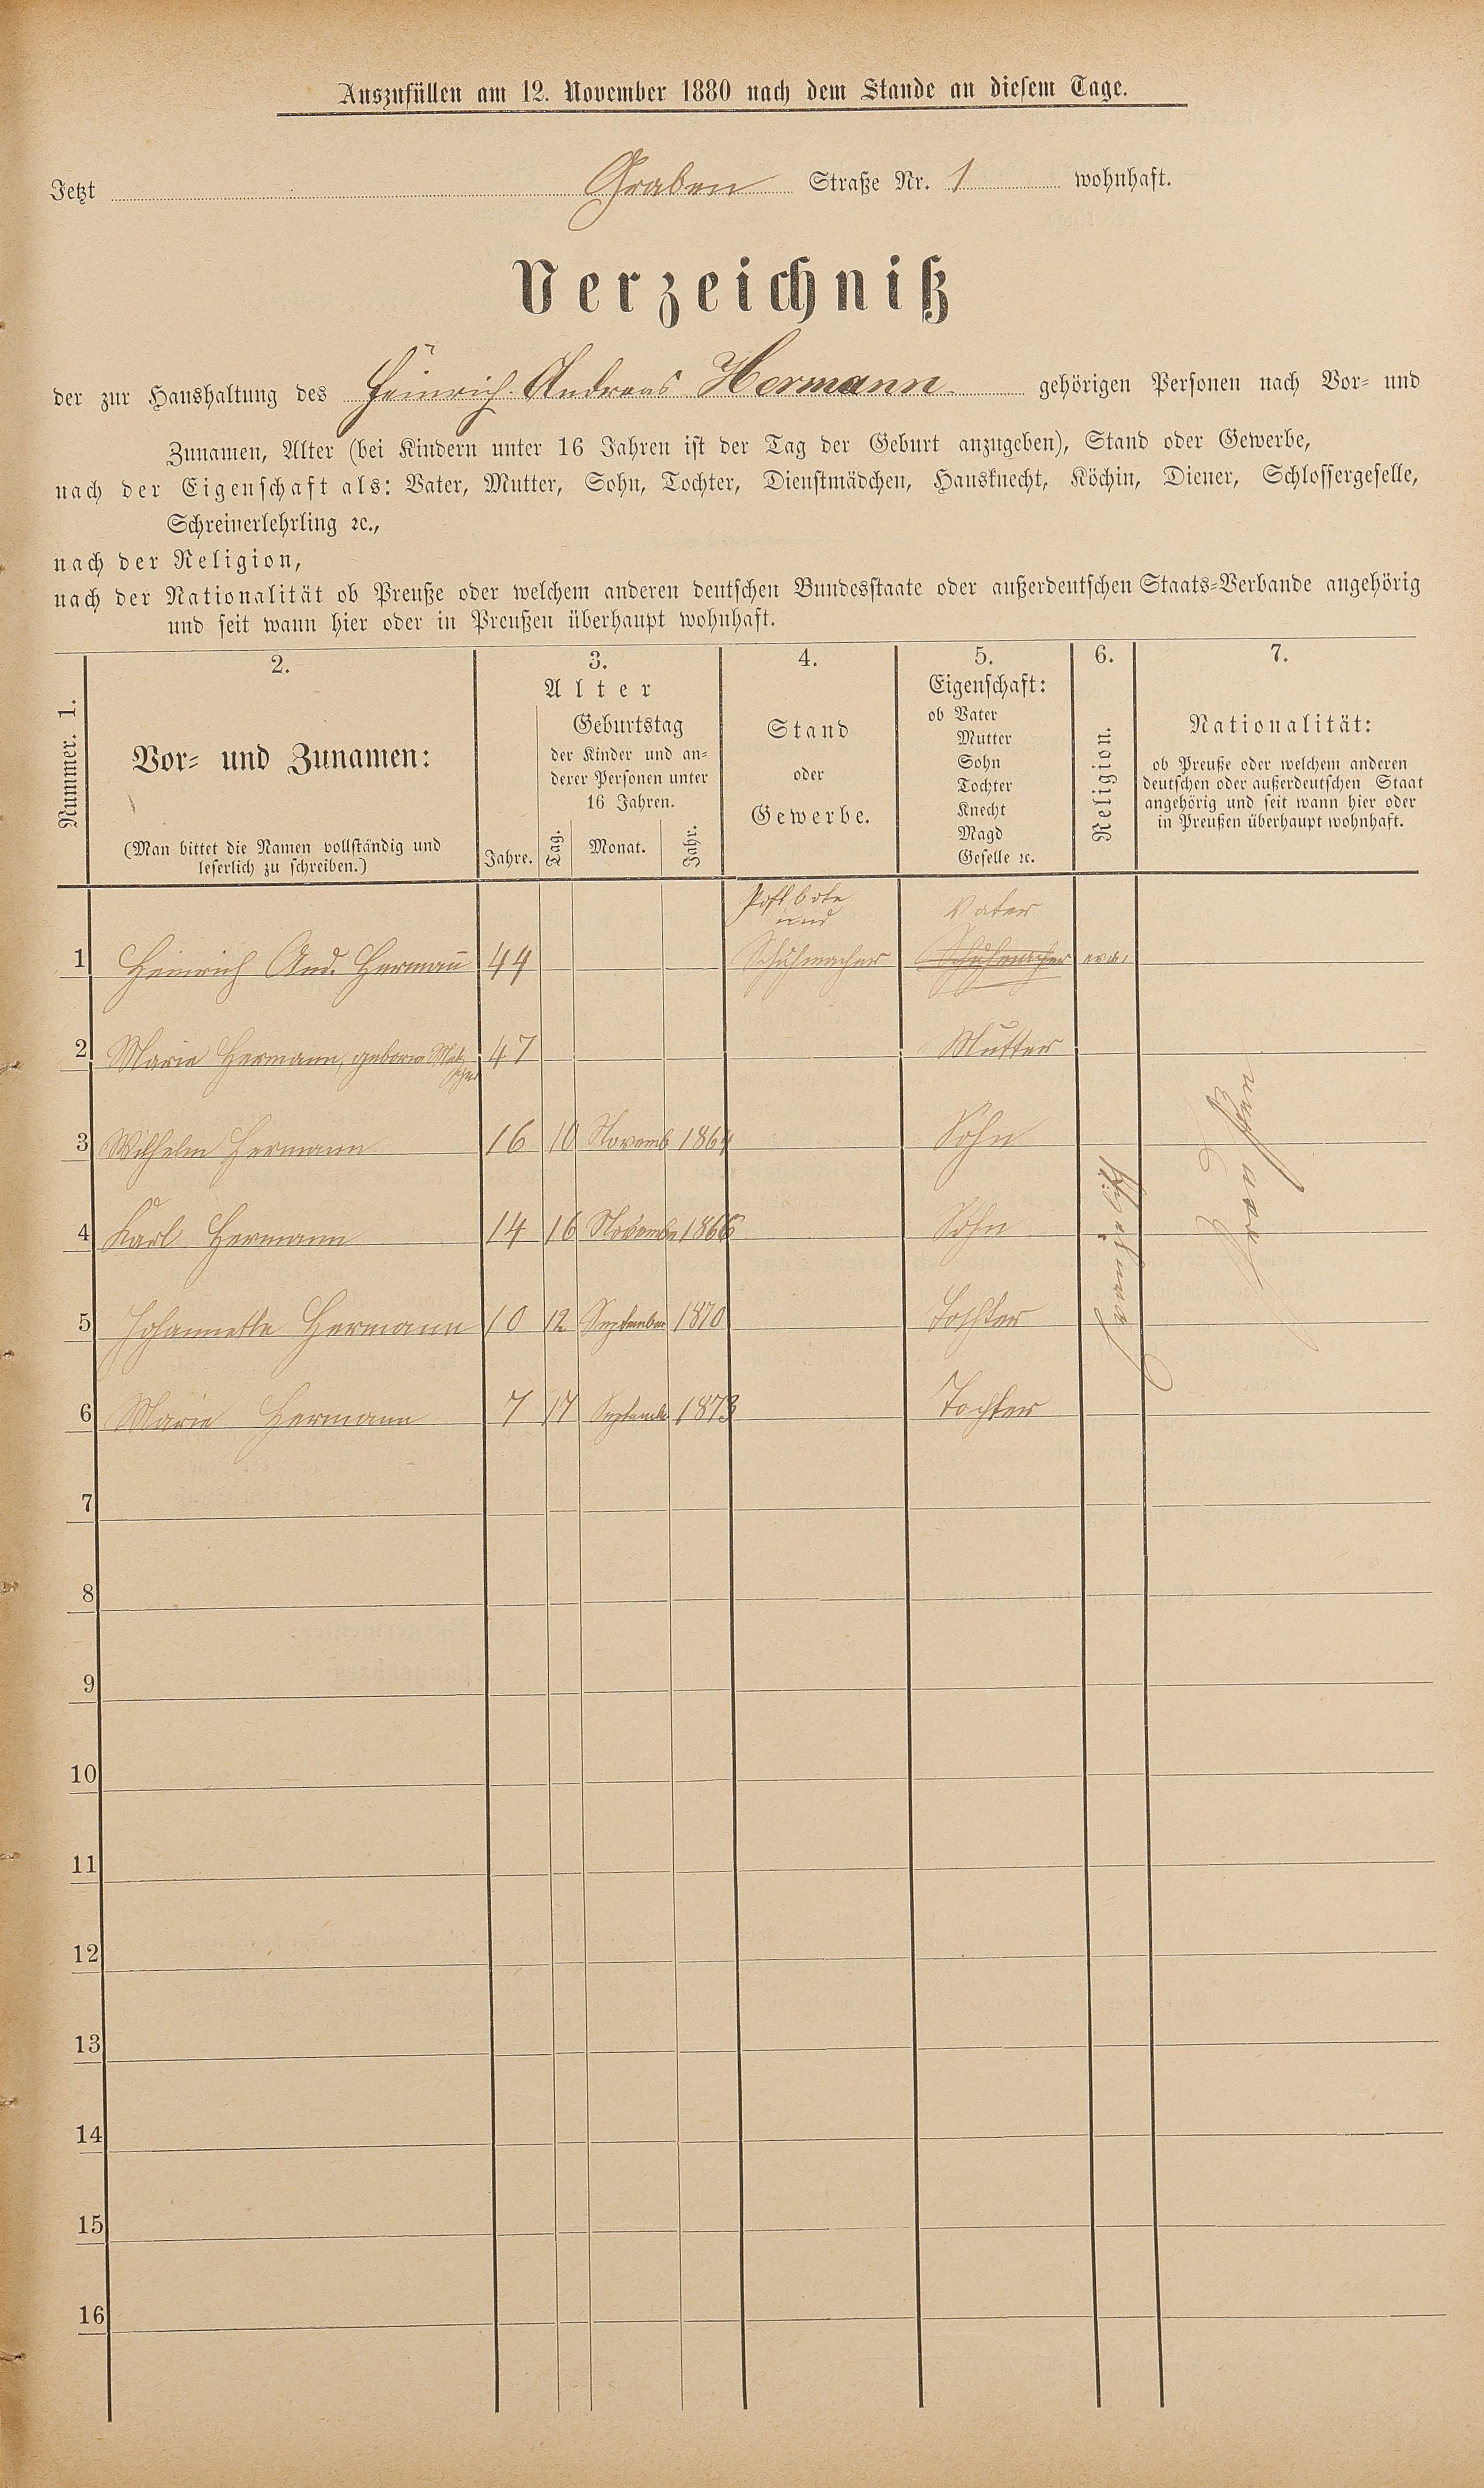 Auszufüllen am 12. November 1880 nach dem Stande an diesem Tage.
Jetzt Graben Straße Nr. 1 wohnhaft.
Verzeichniß
der zur Haushaltung des Heinrich Andreas Hermann gehörigen Personen nach Vor- und
Zunamen, Alter (bei Kindern unter 16 Jahren ist der Tag der Geburt anzugeben), Stand oder Gewerbe,
nach der Eigenschaft als: Vater, Mutter, Sohn, Tochter, Dienstmädchen, Hausknecht, Köchin, Diener, Schlossergeselle,
Schreinerlehrling ꝛc.,
nach der Religion,
nach der Nationalität ob Preuße oder welchem anderen deutschen Bundesstaate oder außerdeutschen Staats-Verbande angehörig
und seit wann hier oder in Preußen überhaupt wohnhaft.
Nummer. 1.
2.
Vor- und Zunamen:
(Man bittet die Namen vollständig und
leserlich zu schreiben.)
3.
Alter
Jahre.
Geburtstag
der Kinder und an-
derer Personen unter
16 Jahren.
Tag. Monat. Jahr.
4.
Stand
oder
Gewerbe.
5.
Eigenschaft:
ob Vater
Mutter
Sohn
Tochter
Knecht
Magd
Geselle ꝛc.
6.
Religion.
7.
Nationalität:
ob Preuße oder welchem anderen
deutschen oder außerdeutschen Staat
angehörig und seit wann hier oder
in Preußen überhaupt wohnhaft.
Postbote Vater
und
1 Heinrich And. Hermann̄ 44 Schuhmacher Schuhmacher eva.
2 Marie Hermann, geborne 47 Mutter
3 Wilhelm Hermann 16 10 Novemb 1864 Sohn
4 Karl Hermann 14 16 Novembe 1866 Sohn
5 Johannette Hermann 10 12 September 1870 Tochter
6 Marie Hermann 7 17 Septembe 1873 Tochter
Evangelisch
7
8
9
10
11
12
13
14
15
16